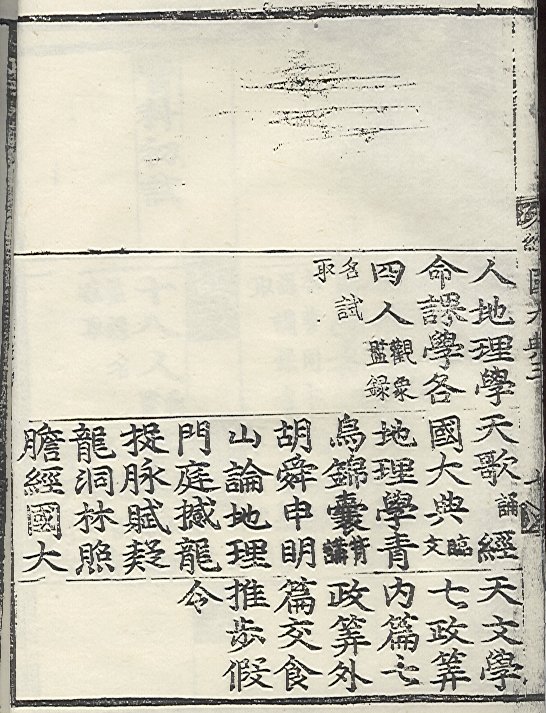 經國大典三
人地理學
命課學各
四人觀象監錄
名試取
天歌誦經
國大典臨文
地理學青
烏錦囊背講
胡舜申明
山論地理
門庭撼龍
捉脉賦疑
龍洞林照
膽經國大
天文學
七政筭
內篇七
政筭外
篇交食
推步假
令